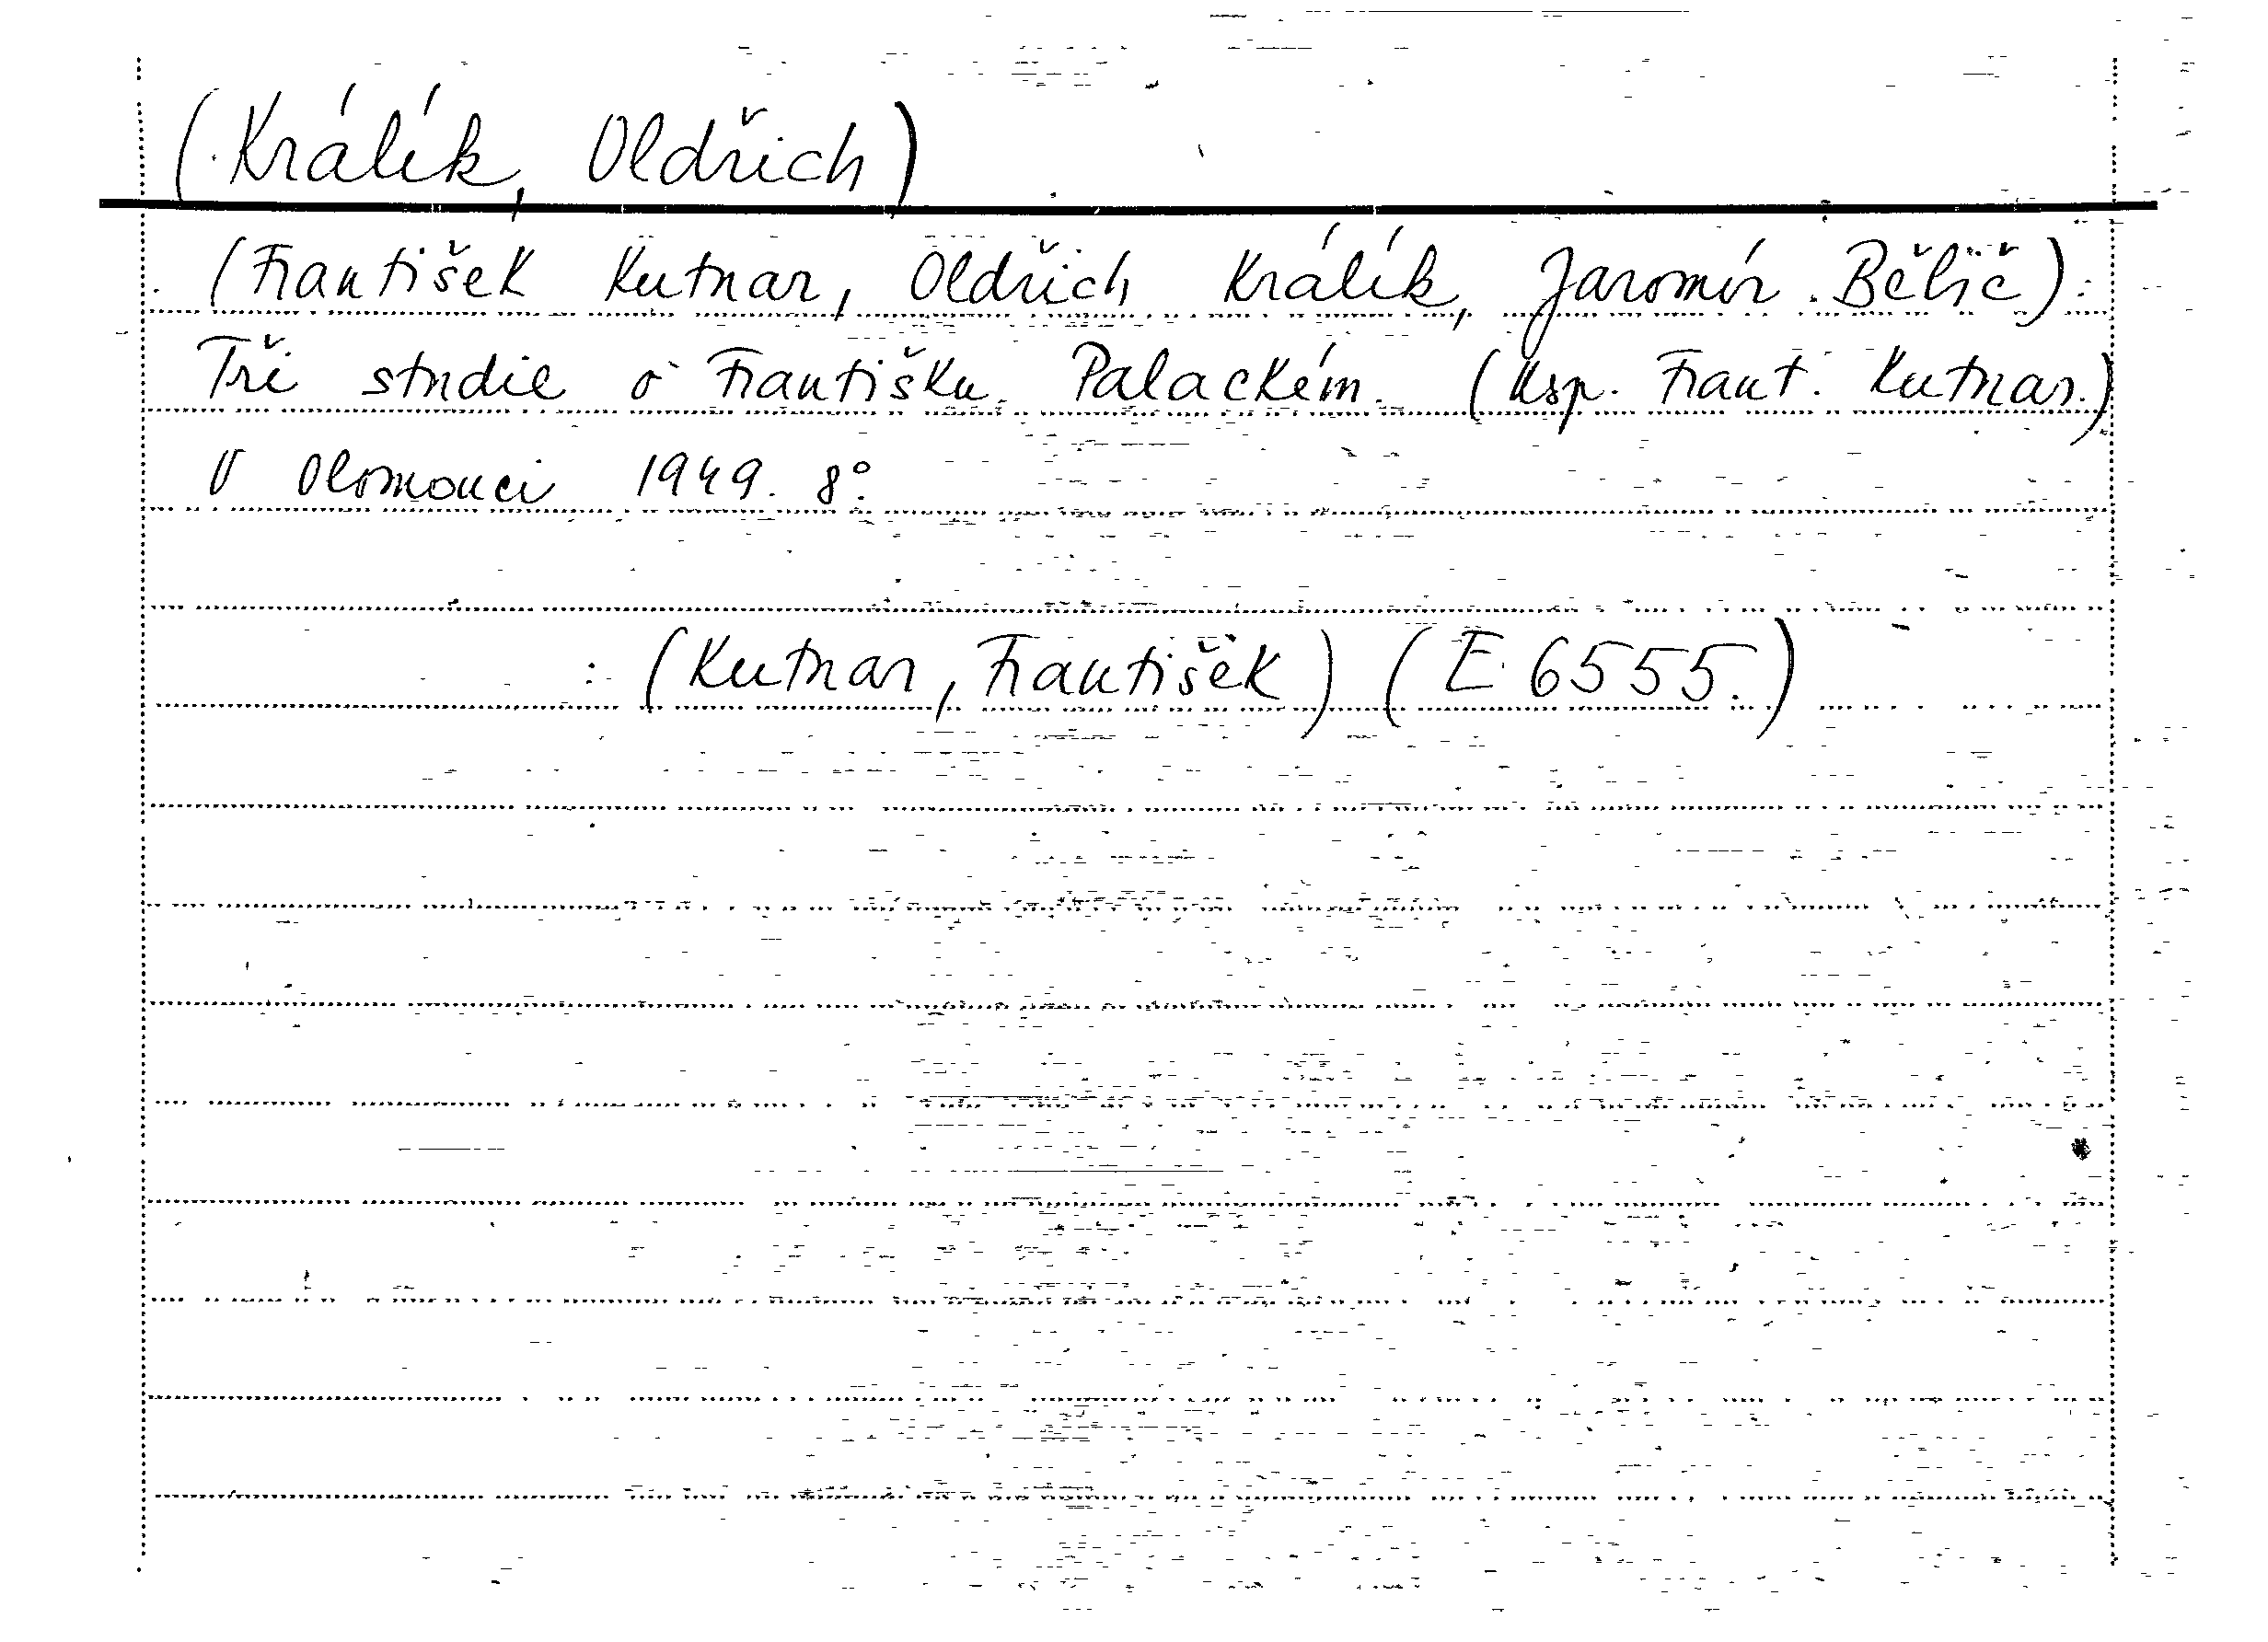 (Králík, Oldřich)
(František Kutnar, Oldřich Králík, Jaromír Bělič):
Tři studie o Františku Palackém. (Usp. Frant. Kutnar.)
V Olomouci 1949. 8°.
: (Kutnar, František) (E 6555.)